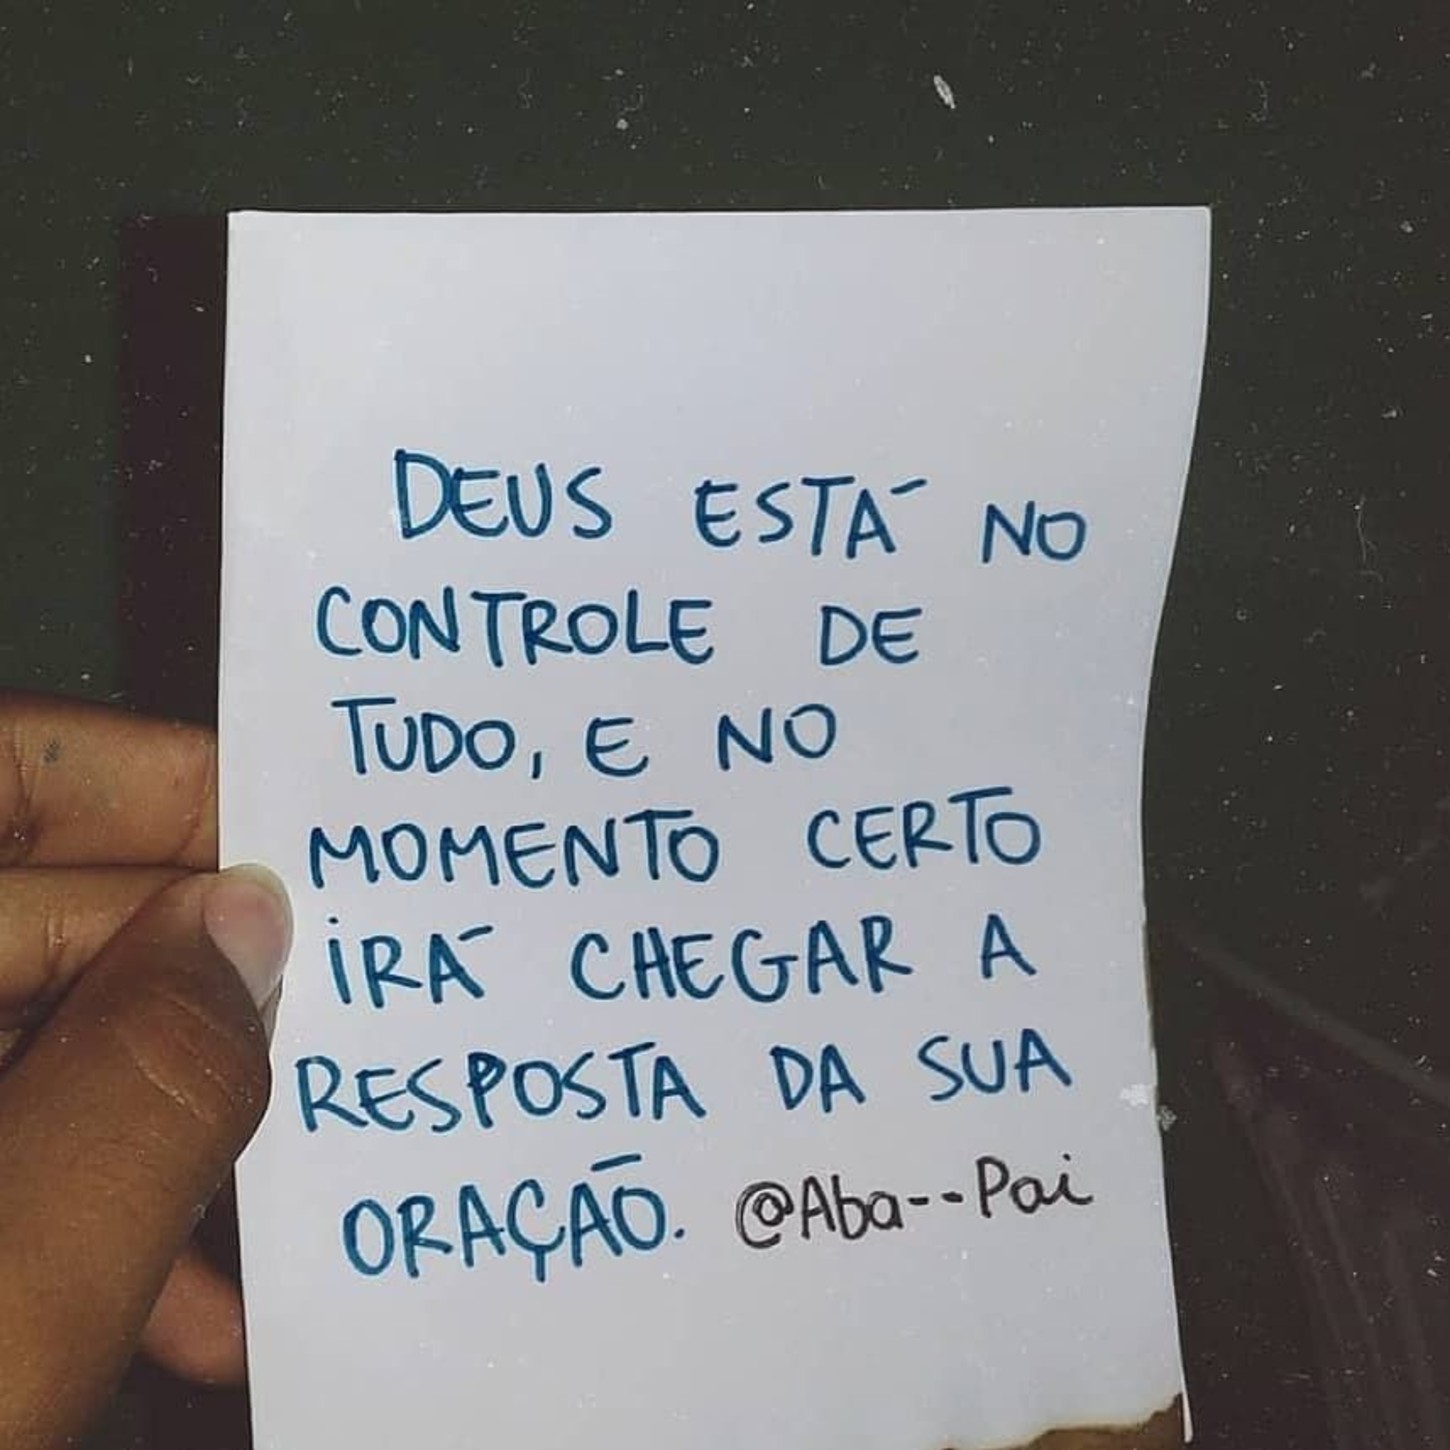 DEUS ESTÁ NO
CONTROLE DE
TUDO, E NO
MOMENTO CERTO
IRÁ CHEGAR A
RESPOSTA DA SUA
ORAÇÃO. @Aba--Pai